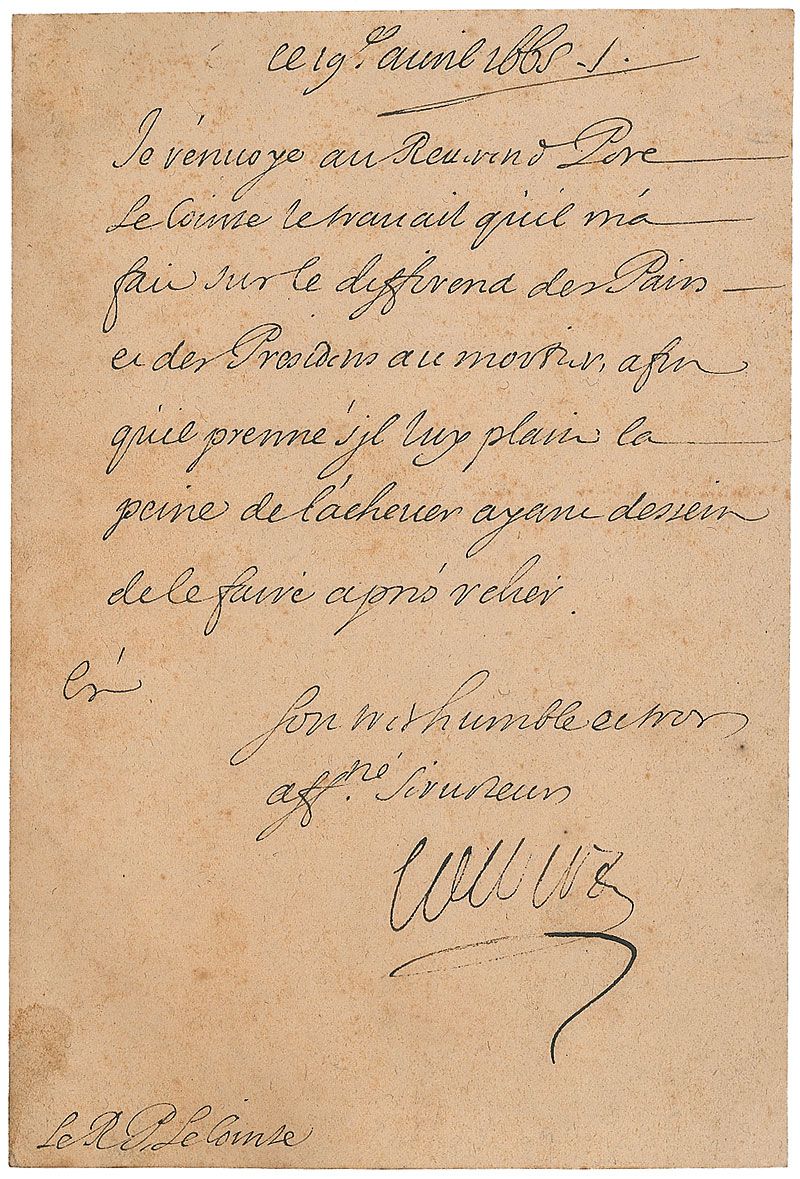 ce 19.e auril 1665 -/.
Je r'énuoye au Reuerend Pere
Le Cointe le trauail qu'il m'a
fait sur le differend des Pairs
et des Presidens au mortier, afin
qu'il prenne s'jl luy plaist la
peine de l'acheuer ayant dessein
de le faire aprés relier.
Son tres humble et tres
aff.né Seruiteur
Colbert
Le R P. Le Cointe